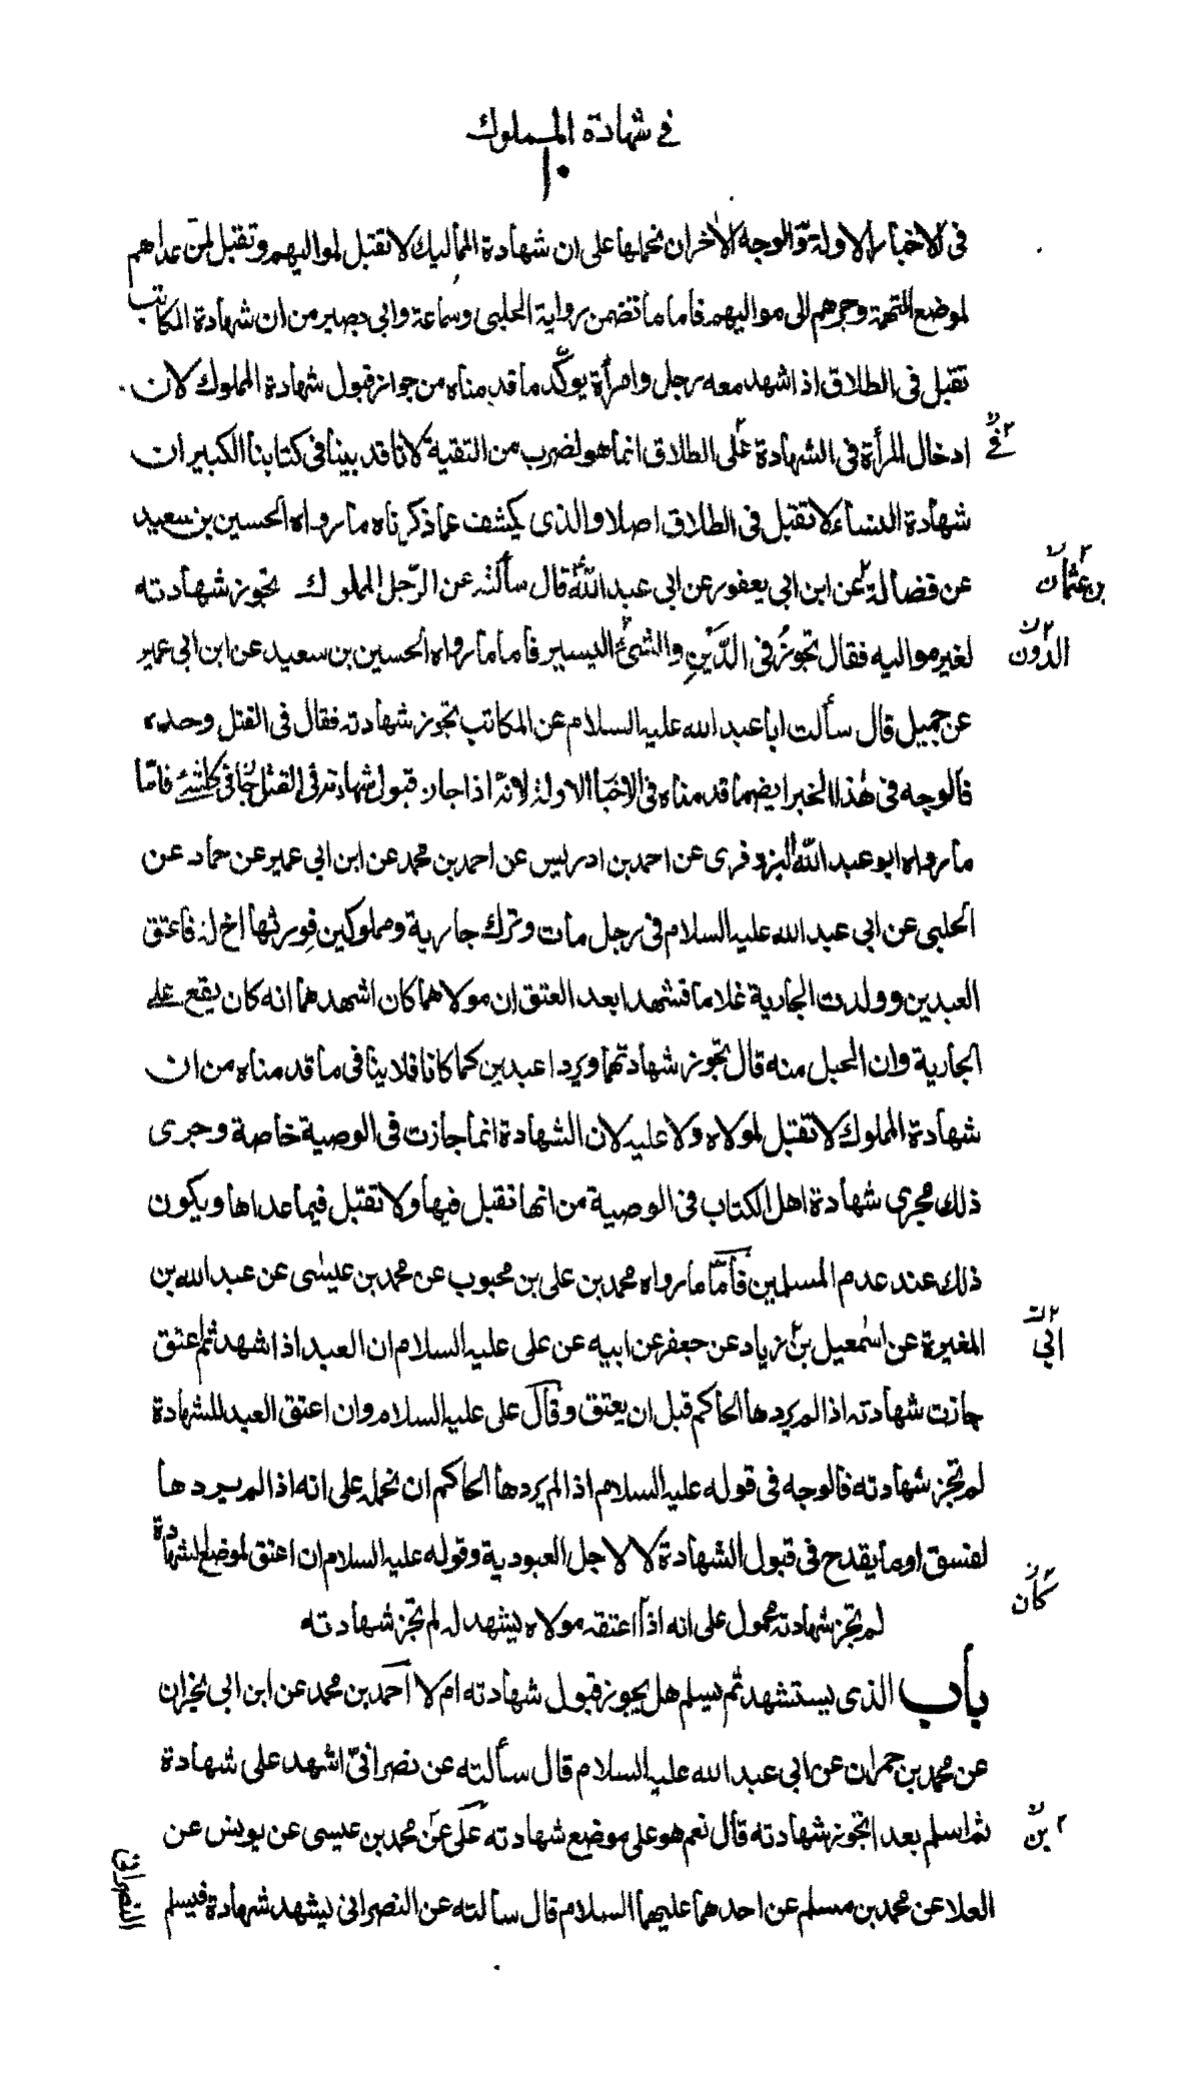 في شهادة المملوك
١٠
فى الاخبار الاولة والوجه الآخران نحملها على ان شهادة المماليك لا تقبل لمواليهم وتقبل لمن عداهم
لموضع التهمة وجرهم الى مواليهم فاما ما تضمن رواية الحلبى وسماعة وابى بصير من ان شهادة المكاتب
تقبل فى الطلاق اذا شهد معه رجل وامرأة يوكّد ما قدمناه من جواز قبول شهادة المملوك لان
ادخال المرأة فى الشهادة على الطلاق انما هو لضرب من التقية لانا قد بينا فى كتابنا الكبير ان
فى
شهادة النساء لا تقبل فى الطلاق اصلا والذى يكشف عما ذكرناه ما رواه الحسين بن سعيد
عن فضالة عن ابن ابى يعفور عن ابى عبد الله قال سألته عن الرّجل المملوك تجوز شهادته
بن عثمان
لغير مواليه فقال تجوزُ فى الدَّيْنِ والشئ اليسير فاما ما رواه الحسين بن سعيد عن ابن ابى عمير
الدون
عن جميل قال سألت ابا عبد الله عليه السلام عن المكاتب تجوز شهادته فقال فى القتل وحده
فالوجه فى هٰذا الخبر ايضا ما قدمناه فى الاخبار الاولة لانّه اذا جاز قبول شهادته فى القتل جاز فى كل شئ فامّا
ما رواه ابو عبد الله البزوفرى عن احمد بن ادريس عن احمد بن محمد عن ابن ابى عمير عن حماد عن
الحلبى عن ابى عبد الله عليه السلام فى رجل مات وترك جارية ومملوكين فورثها اخ له فاعتق
العبدين وولدت الجارية غلاما فشهدا بعد العتق ان مولاهما كان اشهدهما انه كان يقع على
الجارية وان الحبل منه قال تجوز شهادتهما ويردا عبدين كما كانا فلا ينافى ما قدمناه من ان
شهادة المملوك لا تقبل لمولاه ولا عليه لان الشهادة انما جازت فى الوصية خاصة وجرى
ذلك مجرى شهادة اهل الكتاب فى الوصية من انها تقبل فيها ولا تقتبل فيما عداها ويكون
ذلك عند عدم المسلمين فامّا ما رواه محمد بن على بن محبوب عن محمد بن عيسٰى عن عبد الله بن
المغيرة عن اسٰمعيل بن زياد عن جعفر عن ابيه عن على عليه السلام ان العبد اذا شهد ثم اعتق
ابى
جازت شهادته اذا لم يردها الحاكم قبل ان يعتق وقال على عليه السلام وان اعتق العبد للشهادة
لم تجز شهادته فالوجه فى قوله عليه السلام اذا لم يردها الحاكم ان نحمله على انه اذا لم يردها
لفسق او ما يقدح فى قبول الشهادة لا لاجل العبودية وقوله عليه السلام ان اعتق لموضع الشهادة
كان
لم تجز شهادته محمول على انه اذا اعتقه مولاه ليشهد له لم تجز شهادته
باب الذى يستشهد ثم يسلم هل يجوز قبول شهادته ام لا احمد بن محمد عن ابن ابى نجران
عن محمد بن حمران عن ابى عبد الله عليه السلام قال سألته عن نصرانىّ اشهد على شهادة
ثم اسلم بعد اتجوز شهادته قال نعم هو على موضع شهادته على عن محمد بن عيسى عن يونس عن
بن
العلا عن محمد بن مسلم عن احدهما عليهما السلام قال سالته عن النصرانى يشهد شهادة فيسلم
النصرانى